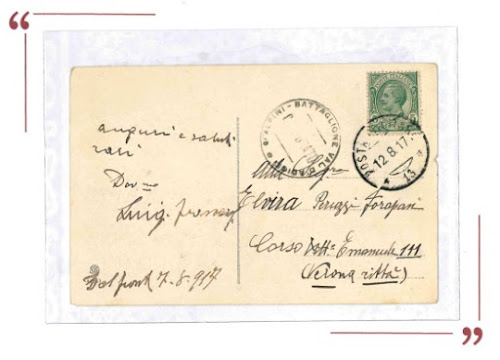 auguri e saluti
cari
Dev.mo
Luigi
Dal fronte 7-8-917
6° ALPINI - BATTAGLIONE VAL D'ADIGE
POSTA
12.8.17
13
alla Sig.ra
Elvira Peruzzi
Corso Vitt° Emanuele 111
Verona (città)